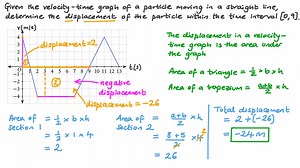 Given the velocity-time graph of a particle moving in a straight line,
determine the displacement of the particle within the time interval [0,9].
v(m/s)
displacement=2
t(s)
negative
displacement
displacement = -26
The displacement in a velocity-
time graph is the area under
the graph
Area of a triangle = 1/2 × b × h
Area of a trapezium = a+b/2 × h
Area of
section 1
= 1/2 × b × h
= 1/2 × 1 × 4
= 2
Area of
section 2
= a+b/2 × h
= 8+5/2 × 4
= 26
Total displacement
= 2 + (-26)
= -24m